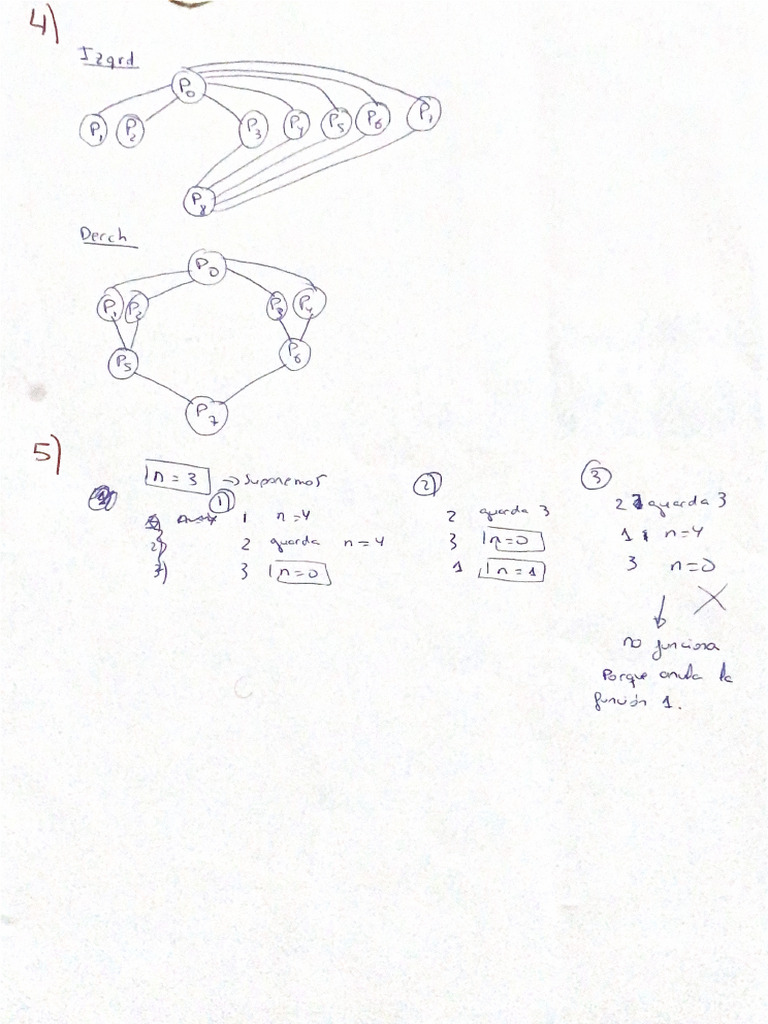 4)
Izqrd
P0
P1 P2 P3 P4 P5 P6 P7
P8
Derch
P0
P1 P2 P3 P4
P5 P6
P7
5)
n = 3 → Suponemos
1
1 n=4
2) 2 guarda n=4
3) 3 n=0
2
2 guarda 3
3 n=0
1 n=1
3
2 guarda 3
1 n=4
3 n=0
no funciona
Porque anula la
función 1.